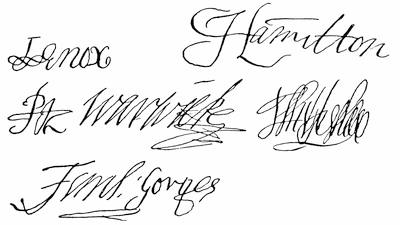 Lenox
Hamilton
Ro Warwick
Ferd. Gorges